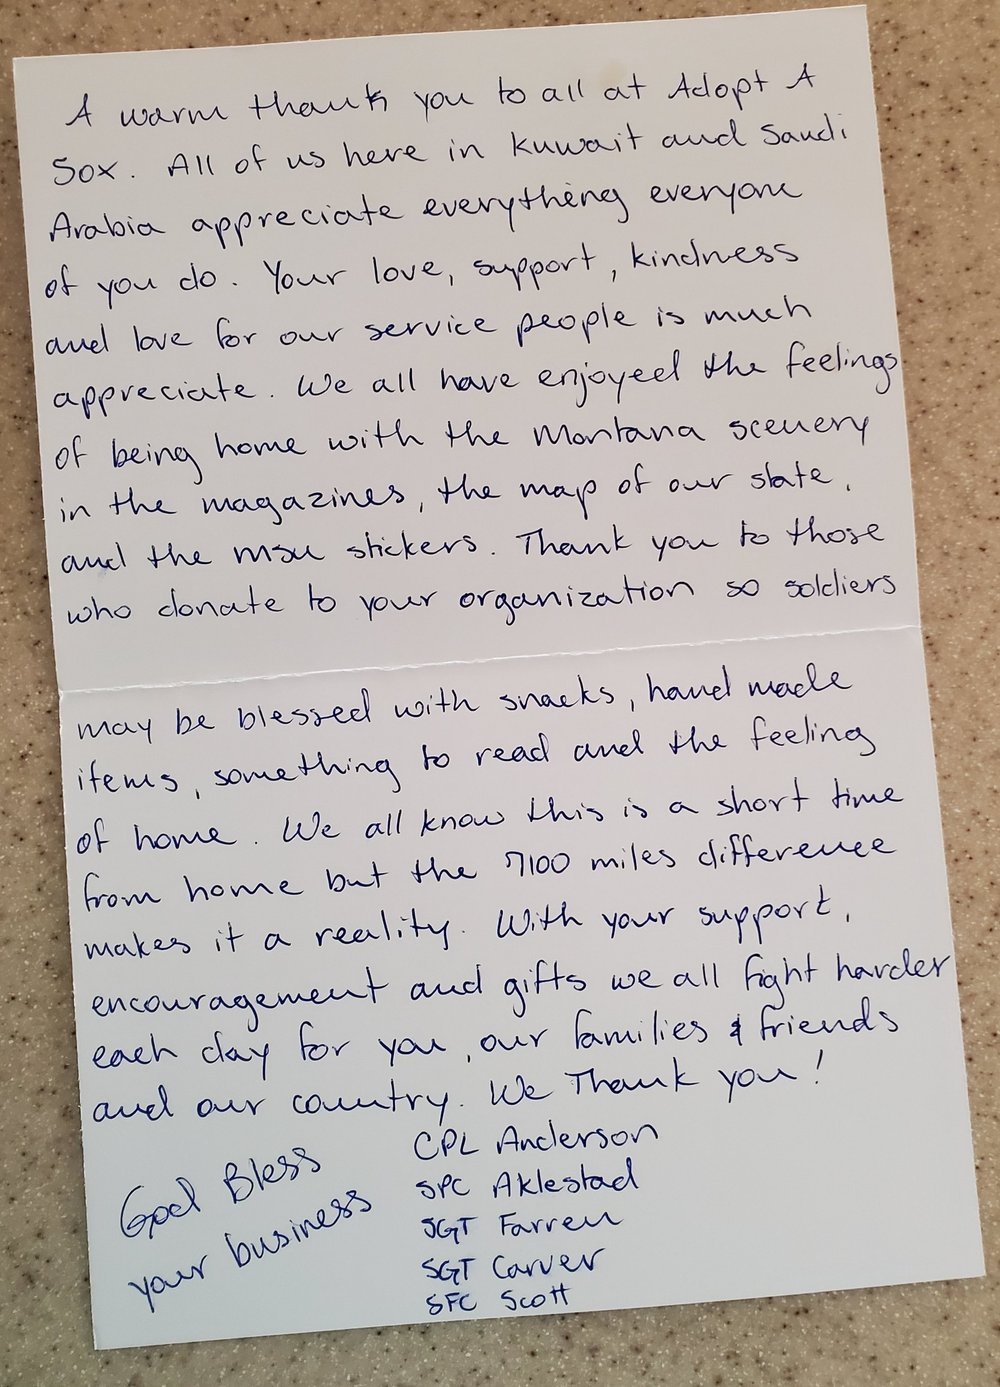 A warm thank you to all at Adopt A
Sox. All of us here in Kuwait and Saudi
Arabia appreciate everything everyone
of you do. Your love, support, kindness
and love for our service people is much
appreciate. We all have enjoyeed the feelings
of being home with the Montana scenery
in the magazines, the map of our state,
and the MSU stickers. Thank you to those
who donate to your organization so soldiers
may be blessed with snacks, hand made
items, something to read and the feeling
of home. We all know this is a short time
from home but the 7100 miles difference
makes it a reality. With your support,
encouragement and gifts we all fight harder
each day for you, our families & friends
and our country. We Thank you!
CPL Anderson
SPC Aklestad
SGT Farren
SGT Carver
SFC Scott
God Bless
your business